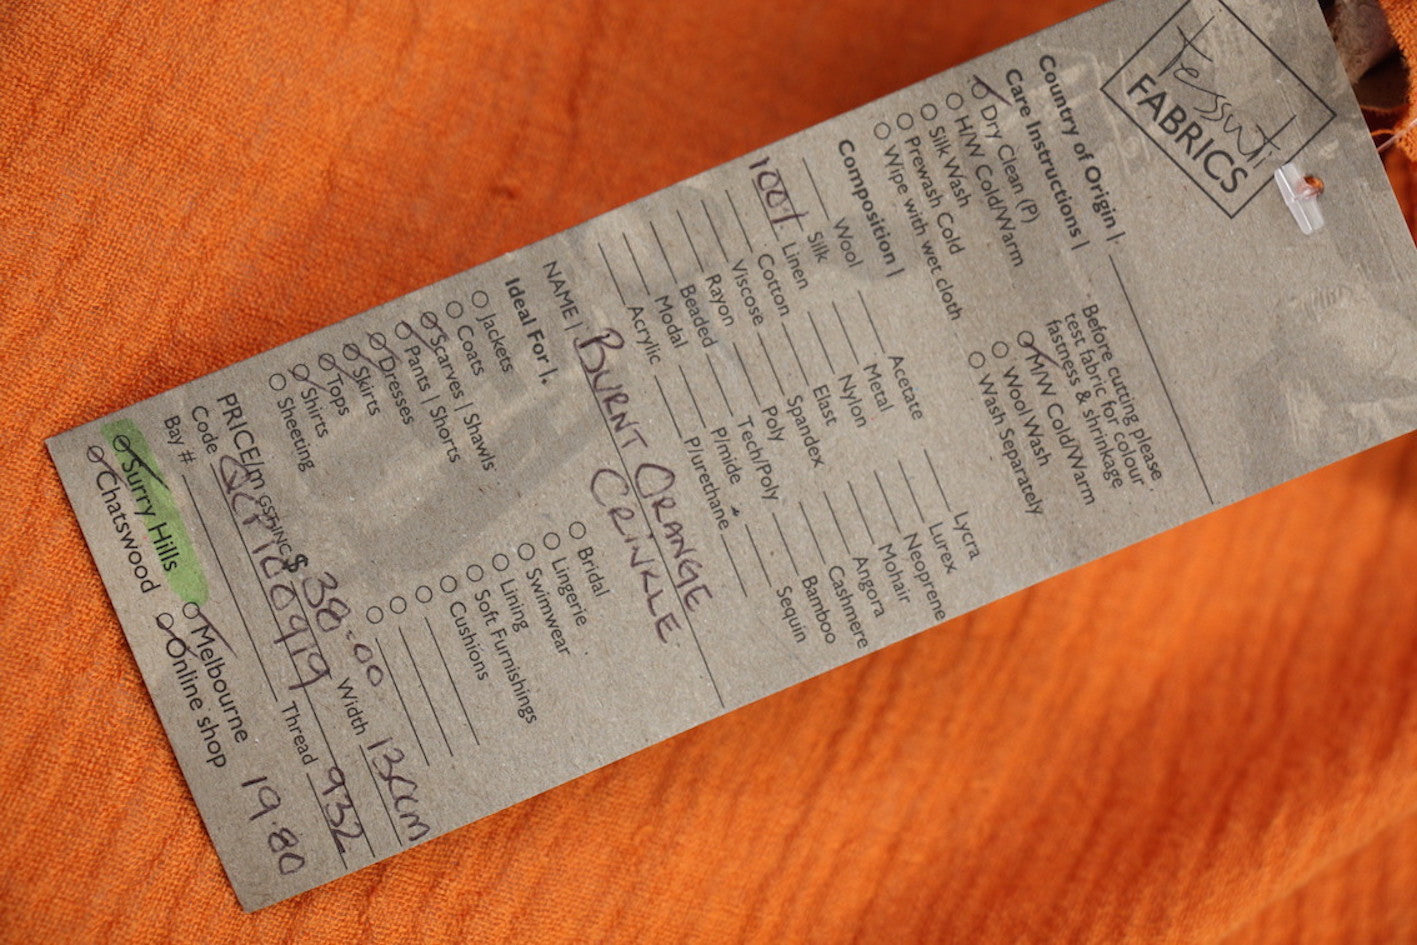 tessuti
FABRICS
Country of Origin |
Care Instructions |
Dry Clean (P)
H/W Cold/Warm
Silk Wash
Prewash Cold
Wipe with wet cloth
Before cutting please
test fabric for colour
fastness & shrinkage
M/W Cold/Warm
Wool Wash
Wash Separately
Composition |
Wool Acetate Lycra
Silk Metal Lurex
100% Linen Nylon Neoprene
Cotton Elast Mohair
Viscose Spandex Angora
Rayon Poly Cashmere
Beaded Tech/Poly Bamboo
Modal P/mide Sequin
Acrylic P/urethane
NAME | BURNT ORANGE
CRINKLE
Ideal For |
Jackets Bridal
Coats Lingerie
Scarves | Shawls Swimwear
Pants | Shorts Lining
Dresses Soft Furnishings
Skirts Cushions
Tops
Shirts
Sheeting
PRICE/m GST INC $ 38.00 Width 130cm
Code Thread 932
Bay #
Surry Hills Melbourne
Chatswood Online shop
19.80